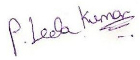 P. Leela Kumar